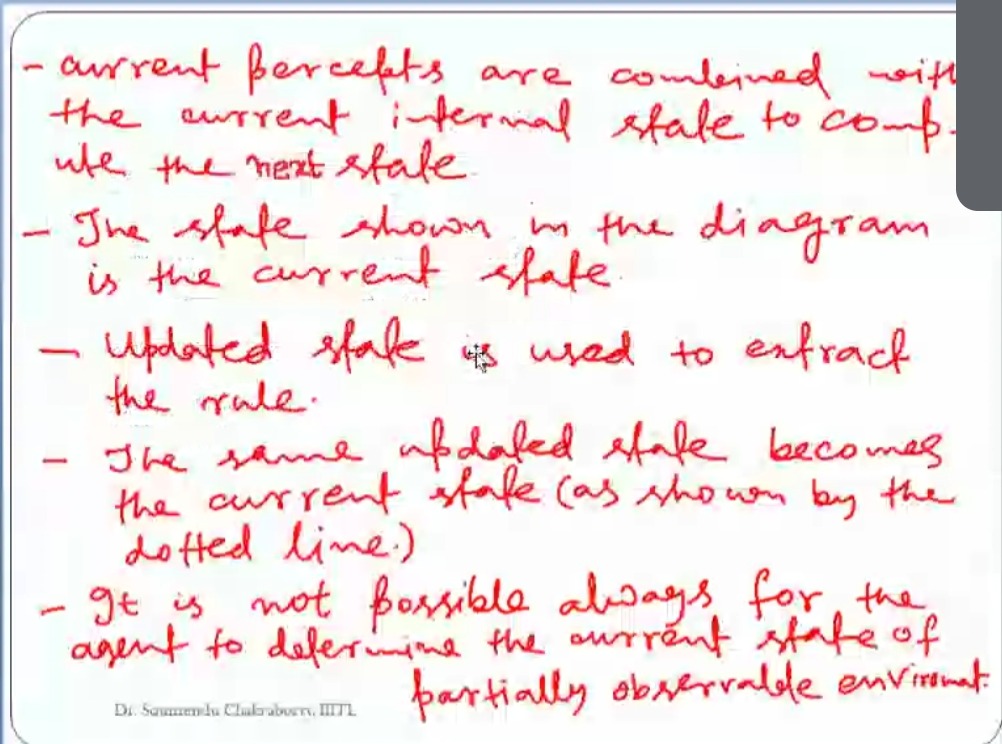 - current percepts are combined with
the current internal state to comp-
ute the next state
- The state shown in the diagram
is the current state.
- Updated state is used to extract
the rule.
- The same updated state becomes
the current state (as shown by the
dotted line.)
- It is not possible always for the
agent to determine the current state of
partially observable enviromat.
Dr. Saumendu Chakraborty, IIITL